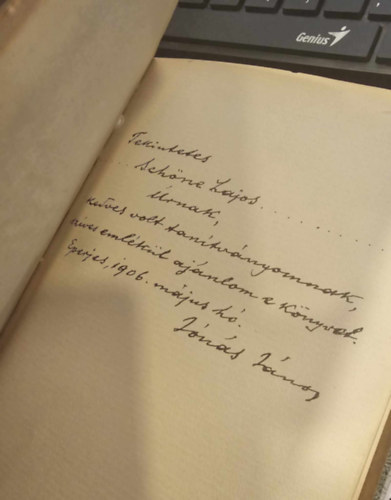 Genius
Tekintetes
Schöne Lajos..........
Úrnak,
kedves volt tanítványomnak,
szíves emlékül ajánlom e könyvet.
Eperjes, 1906. május hó.
Jónás János